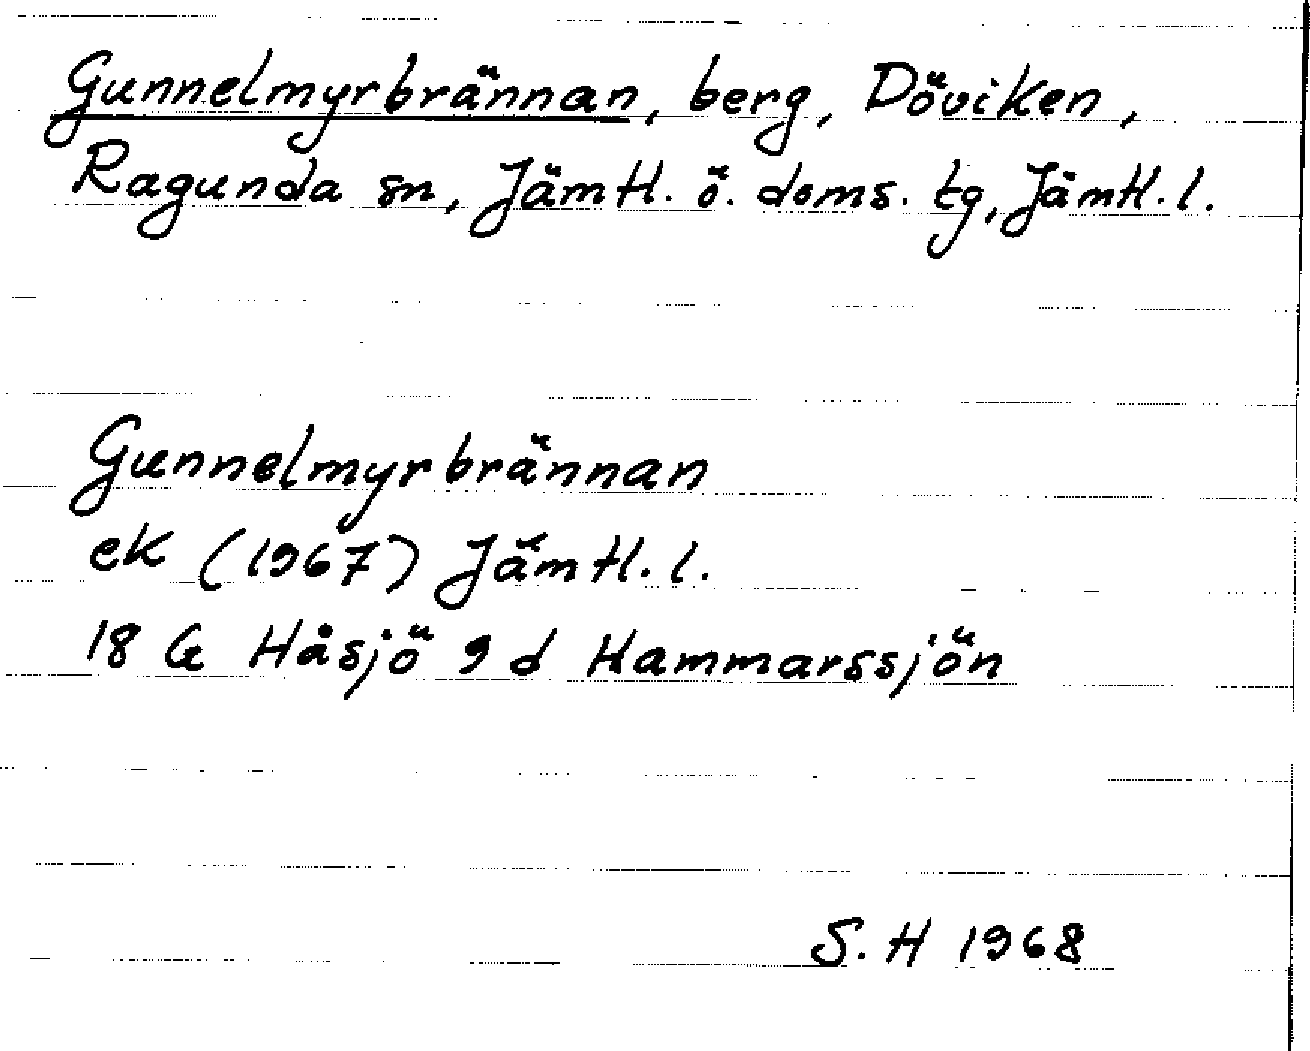 Gunnelmyrbrännan, berg, Döviken,
Ragunda sn, Jämtl. ö. doms. tg, Jämtl. l.
Gunnelmyrbrännan
ek (1967) Jämtl. l.
18 G Håsjö 9 d Hammarssjön
S. H 1968